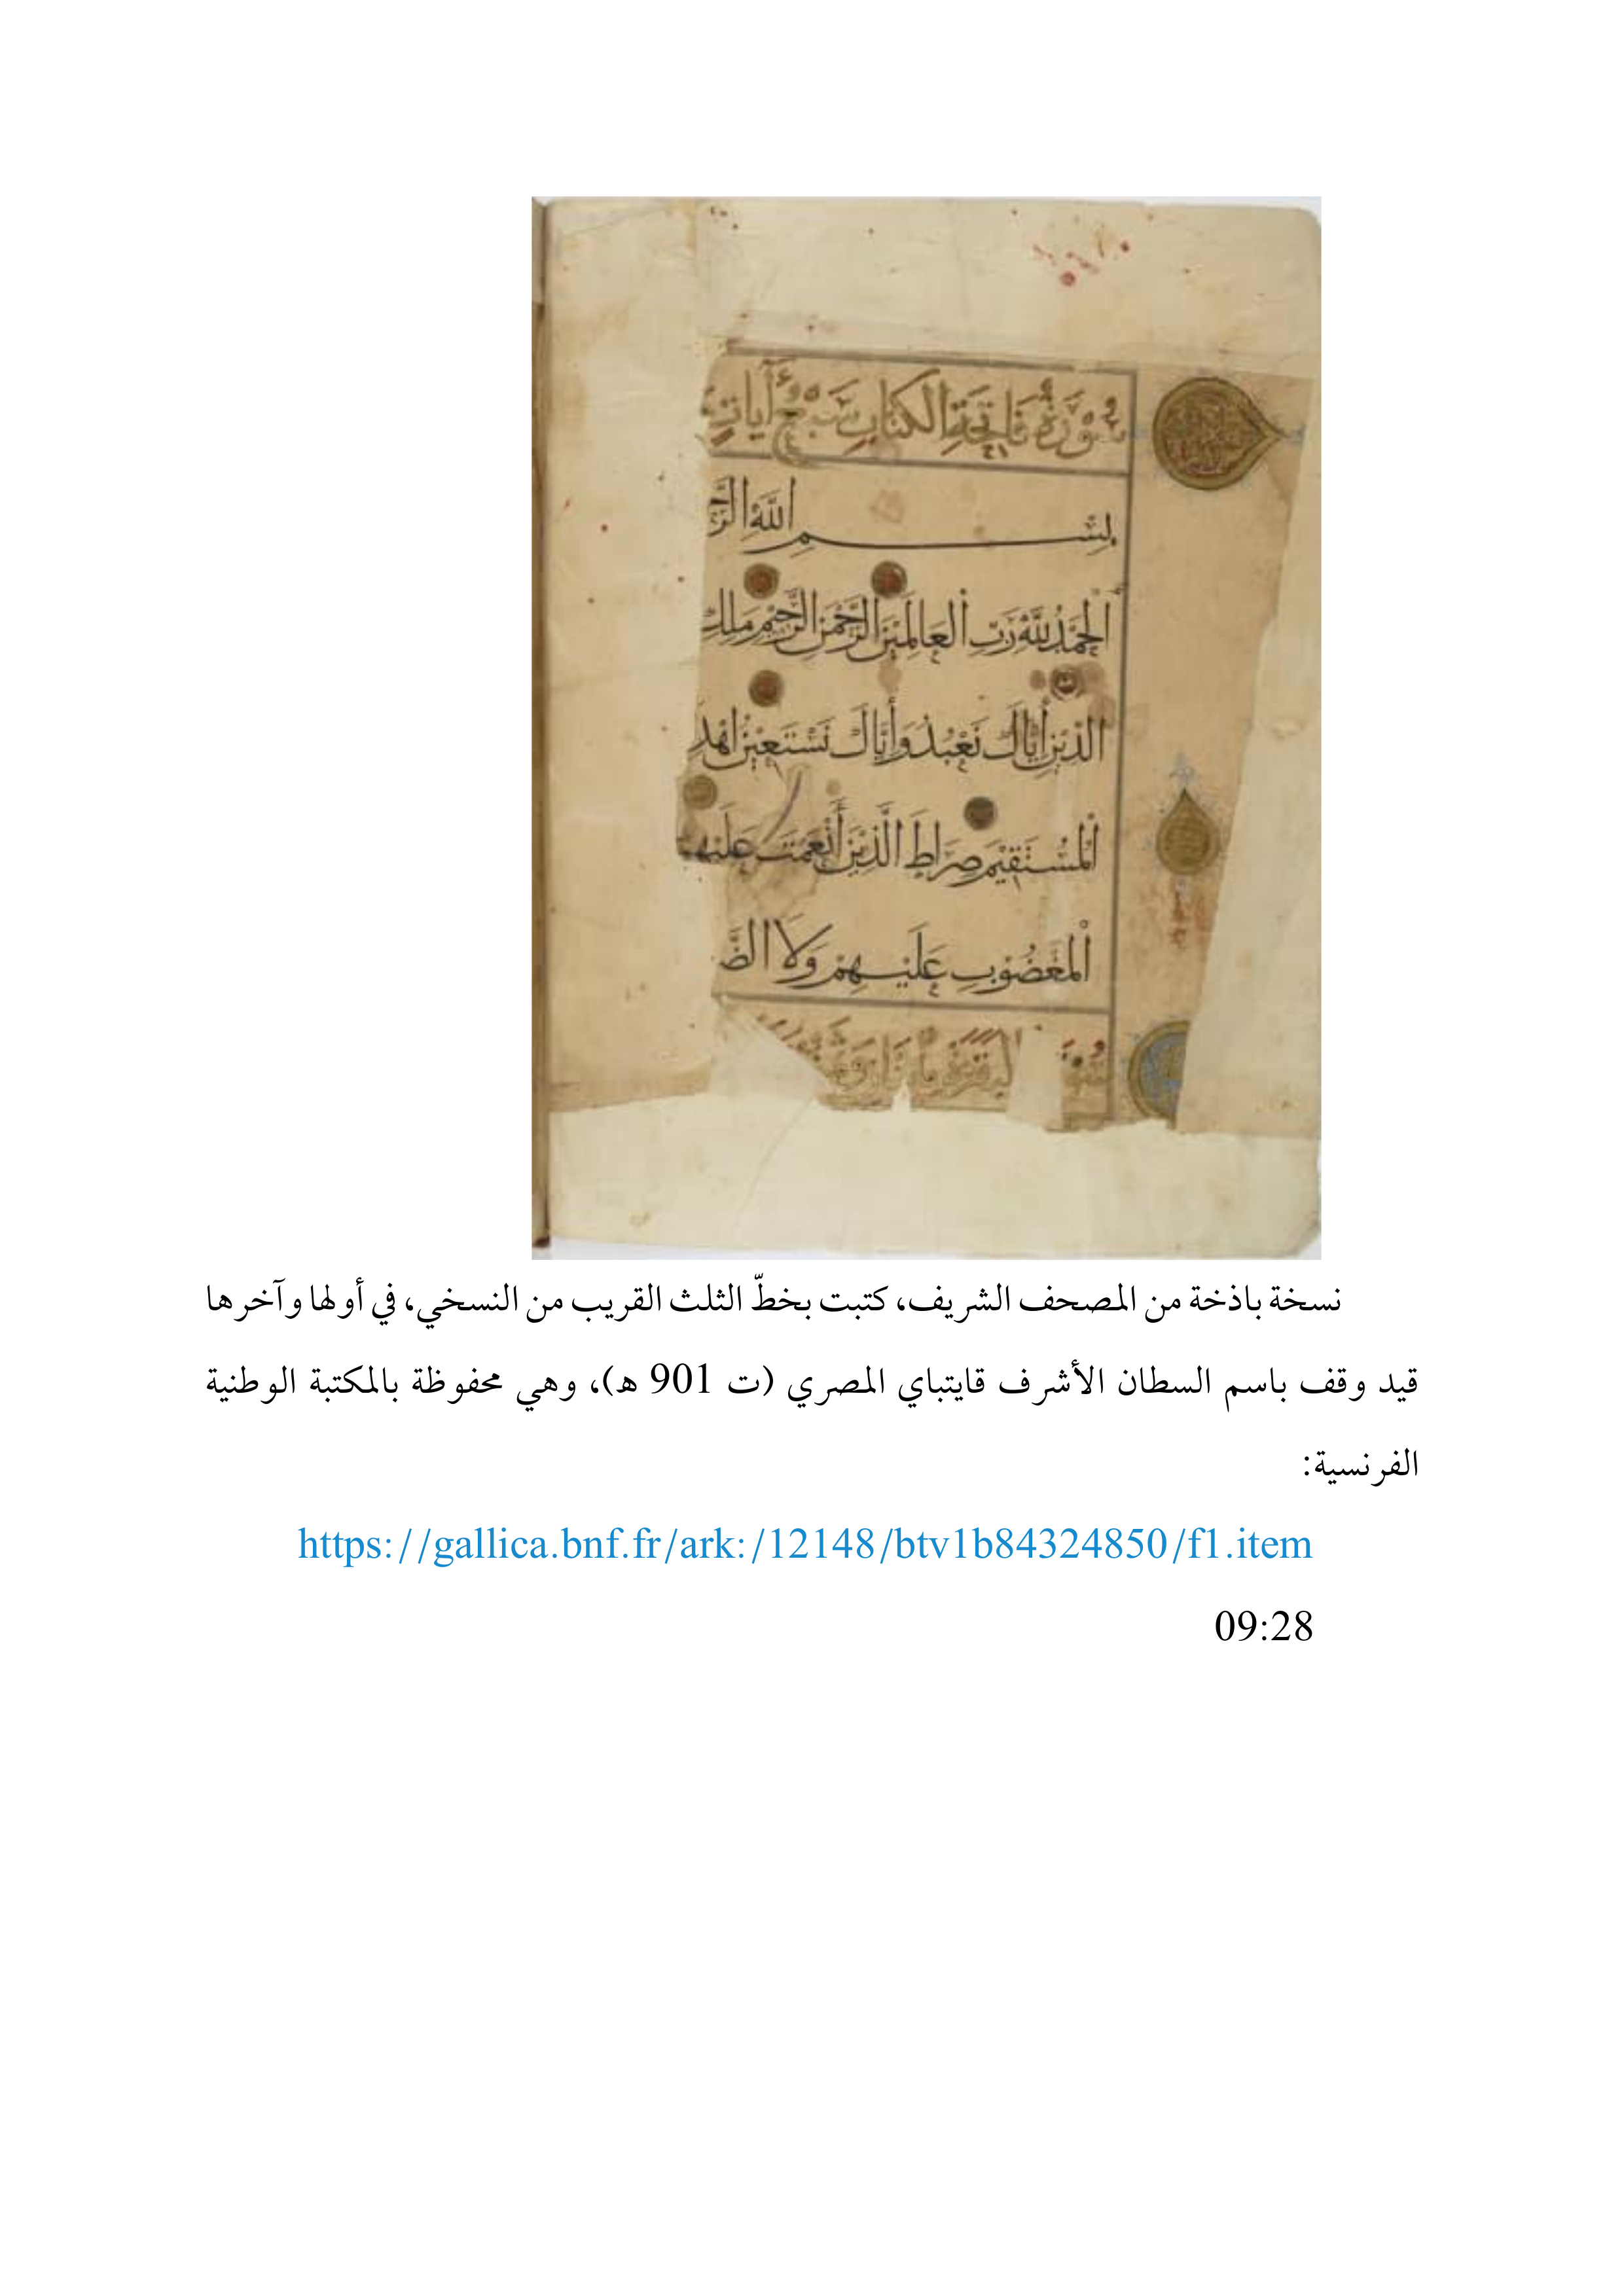 سُورَةُ فَاتِحَةِ الكِتَابِ سَبْعُ آيَاتٍ
بِسْمِ اللَّهِ الرَّحـ
اَلْحَمْدُ لِلَّهِ رَبِّ الْعَالَمِيْنَ الرَّحْمَنِ الرَّحِيْمِ مَلِكِ
الدِّيْنِ أيَّاكَ نَعْبُدُ وَأيَّاكَ نَسْتَعِيْنُ اهْدِ
الْمُسْتَقِيْمَ صِرَاطَ الَّذِيْنَ أَنْعَمْتَ عَلَيْهِـ
الْمَغْضُوْبِ عَلَيْهِمْ وَلَا الضَّ
البقرة
نسخة باذخة من المصحف الشريف، كتبت بخطّ الثلث القريب من النسخي، في أولها وآخرها
قيد وقف باسم السطان الأشرف قايتباي المصري (ت 901 ه)، وهي محفوظة بالمكتبة الوطنية
الفرنسية:
https://gallica.bnf.fr/ark:/12148/btv1b84324850/f1.item
09:28